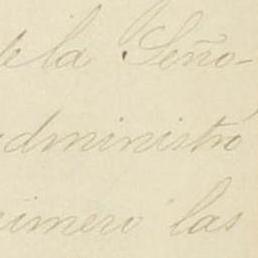 de la Seño-
administró
rimero las